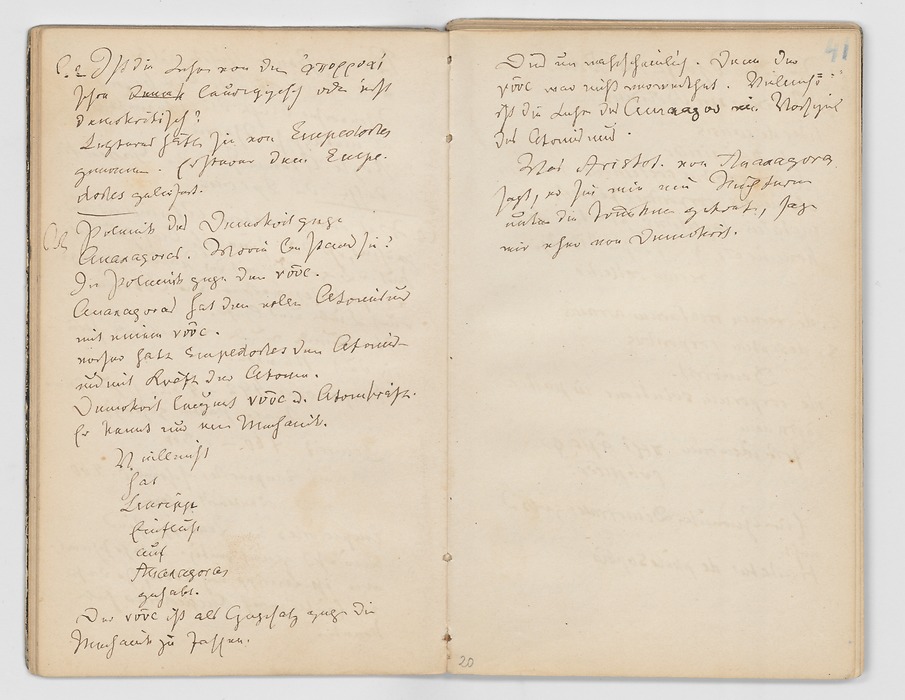 Ist die Lehre von den ἀπορροαί
schon leukippisch oder erst
demokritisch?
Letzterer hätte sie von Empedocles
genommen. Ersterer dem Empe-
docles geliefert.
Polemik des Democrit gegen
Anaxagoras. Worin bestand sie?
In Polemik gegen den νοῦς.
Anaxagoras hat den Atomismus
mit einem νοῦς.
vorher hatte Empedocles den Atomis-
mus mit Kräften der Atome.
Democrit leugnet νοῦς u. Atomkräfte.
Er kennt nur eine Mechanik.
Vielleicht
hat
Leucipp
Einfluß
auf
Anaxagoras
gehabt.
Der νοῦς ist als Gegensatz gegen die
Mechanik zu fassen.
41
Das unwahrscheinlich. Denn der
νοῦς war nicht verwendbar. Vielmehr
ist die Lehre des Anaxagor ein Vorspiel
des Atomismus.
Was Aristot. von Anaxagoras
sagt, er sei wie ein Nüchterner
unter die Trunknen getreten, sage
wir eher von Democrit.
20